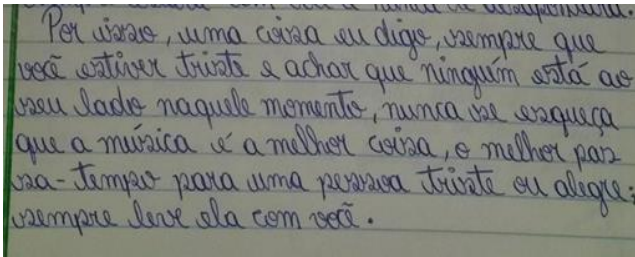 Por isso, uma coisa eu digo, sempre que
você estiver triste e achar que ninguém está ao
seu lado naquele momento, nunca se esqueça
que a música é a melhor coisa, o melhor pas
sa-tempo para uma pessoa triste ou alegre;
sempre leve ela com você.